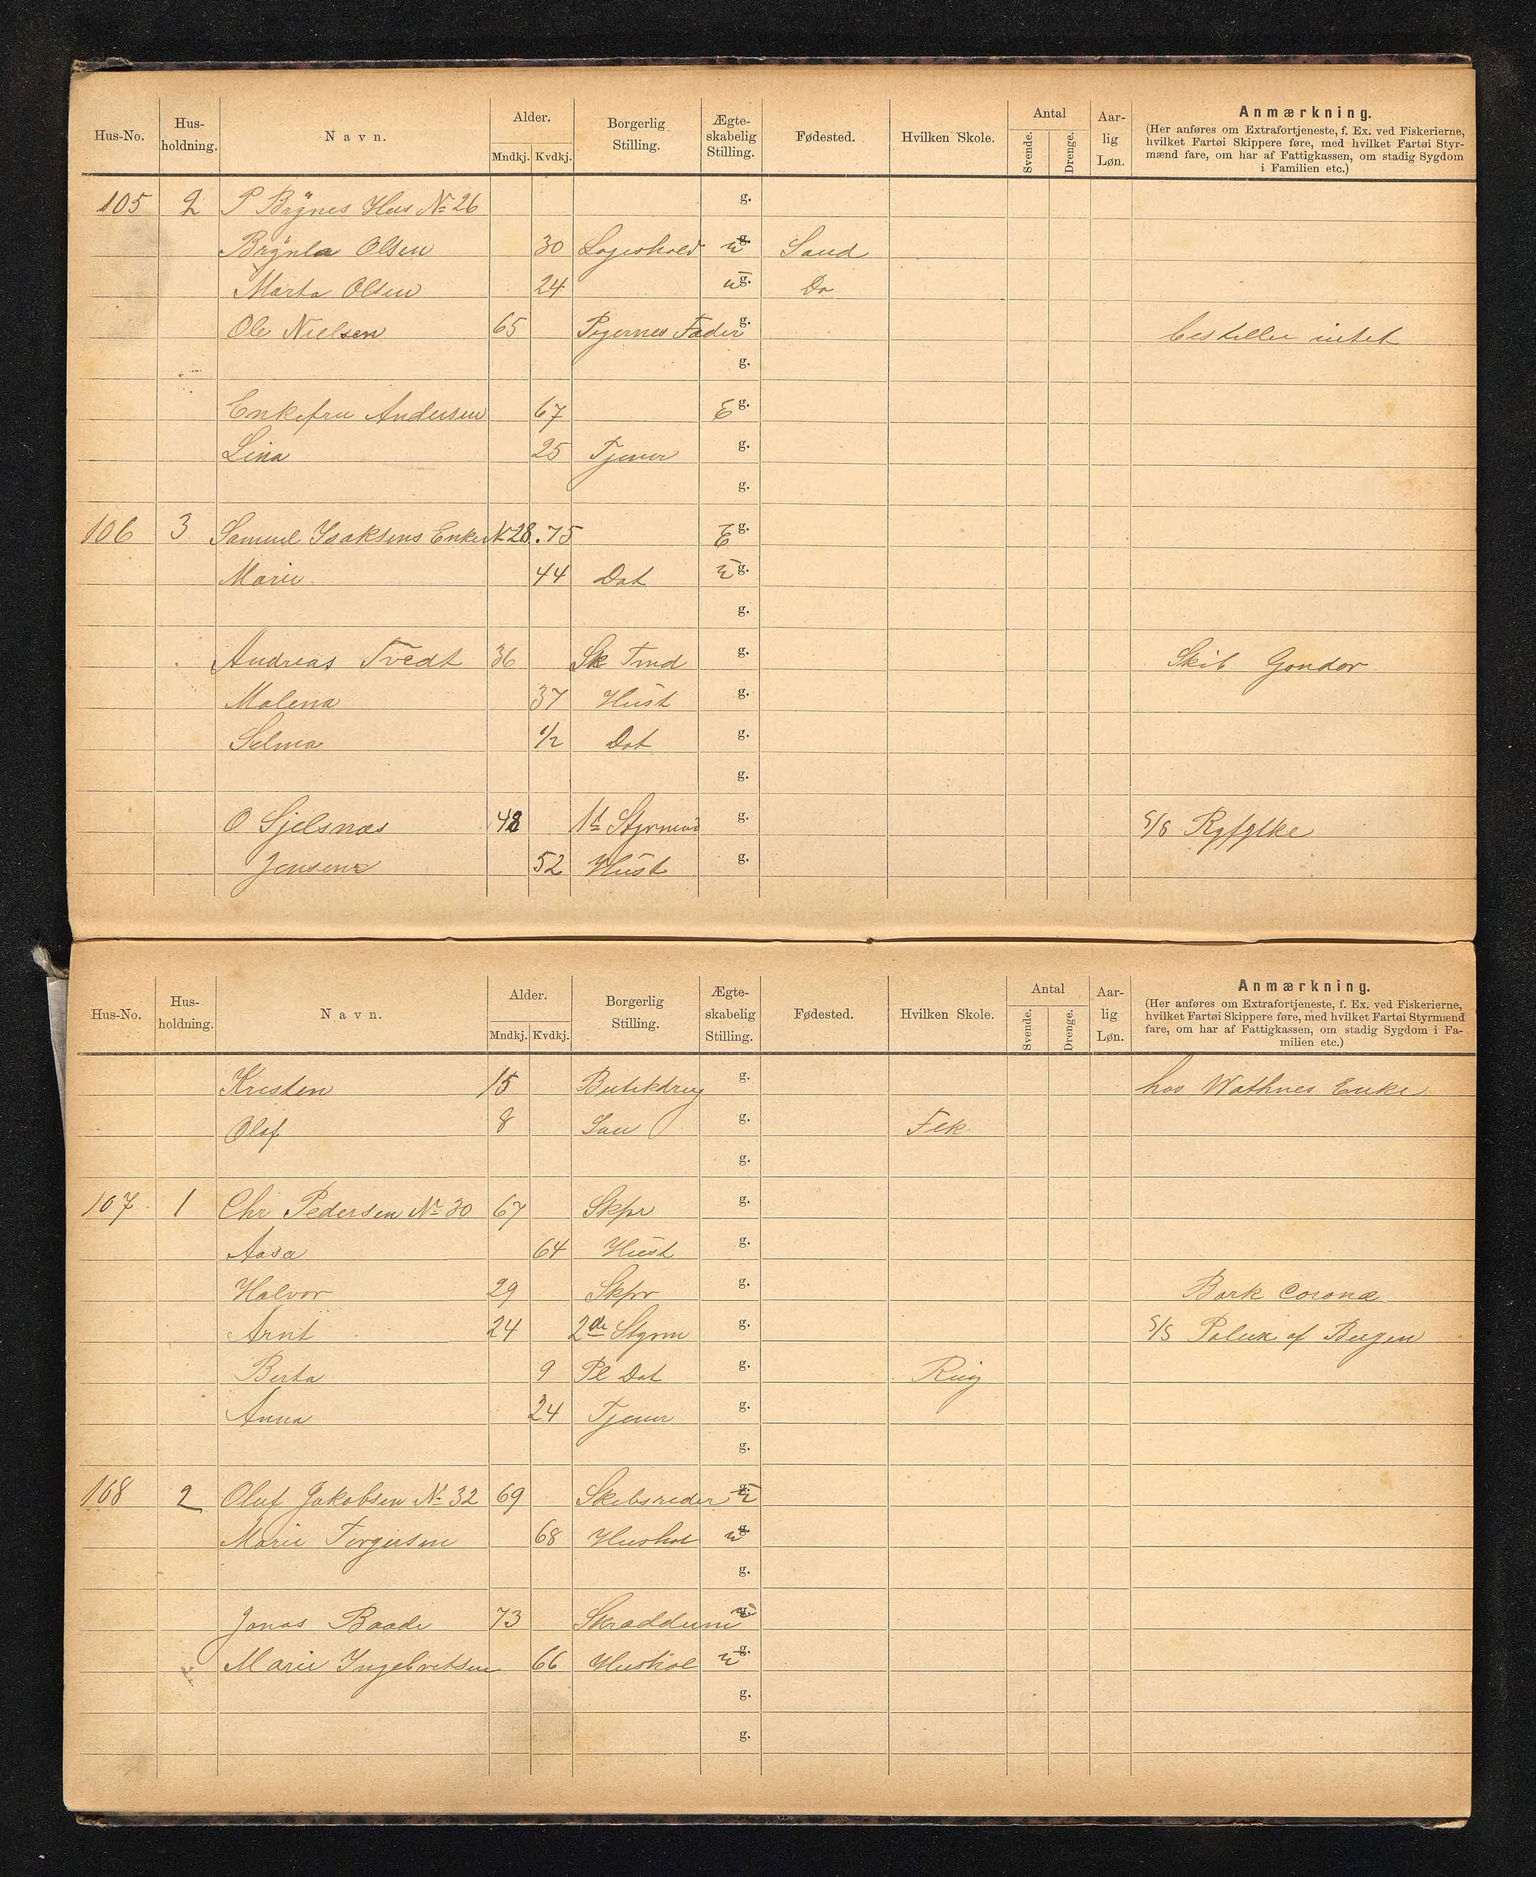 Hus-No. Hus-holdning. Navn. Alder. Mndkj. Kvdkj. Borgerlig Stilling. Ægte-skabelig Stilling. Fødested. Hvilken Skole. Antal Svende. Drenge. Aar-lig Løn. Anmærkning.
(Her anføres om Extrafortjeneste, f. Ex. ved Fiskerierne,
hvilket Fartøi Skippere føre, med hvilket Fartøi Styr-
mænd fare, om har af Fattigkassen, om stadig Sygdom
i Familien etc.)
105 2 P Brÿnes Hus No 26 g.
Brÿnla Olsen 30 Logishold u g. Sand
Marta Olsen 24 u g. Do
Ole Nielsen 65 Pigernes Fader g. bestiller intet
g.
Enkefru Andersen 67 E g.
Lina 25 Tjener g.
g.
106 3 Samuel Isaksens Enke No 28. 75 E g.
Marie 44 Dat u g.
g.
Andreas Tvedt 36 Sk Tmd g. Skib Gondor
Malena 37 Hust g.
Selma 1/2 Dat g.
g.
O Sjelsnæs 48 1st Styrmand g. S/S Ryfylke
Jensene 52 Hust g.
Hus-No. Hus-holdning. Navn. Alder. Mndkj. Kvdkj. Borgerlig Stilling. Ægte-skabelig Stilling. Fødested. Hvilken Skole. Antal Svende. Drenge. Aar-lig Løn. Anmærkning.
(Her anføres om Extrafortjeneste, f. Ex. ved Fiskerierne,
hvilket Fartøi Skippere føre, med hvilket Fartøi Styrmænd
fare, om har af Fattigkassen, om stadig Sygdom i Fa-
milien etc.)
Kristen 15 Butikdreng g. hos Wathnes Enke
Olaf 8 Søn g. Fek
g.
107 1 Chr Pedersen No 30 67 Skpr g.
Aasa 64 Hust g.
Halvor 29 Skpr g. Bark Corona
Arnt 24 2de Styrm g. S/S Polux af Bergen
Berta 9 Pl Dat g. Ring
Anna 24 Tjener g.
g.
108 2 Oluf Jakobsen No 32 69 Skibsreder g.
Marie Torgersen 68 Hushol u g.
g.
Jonas Baade 73 Skrædderm g.
Marie Ingebretsen 66 Hushol u g.
g.
g.